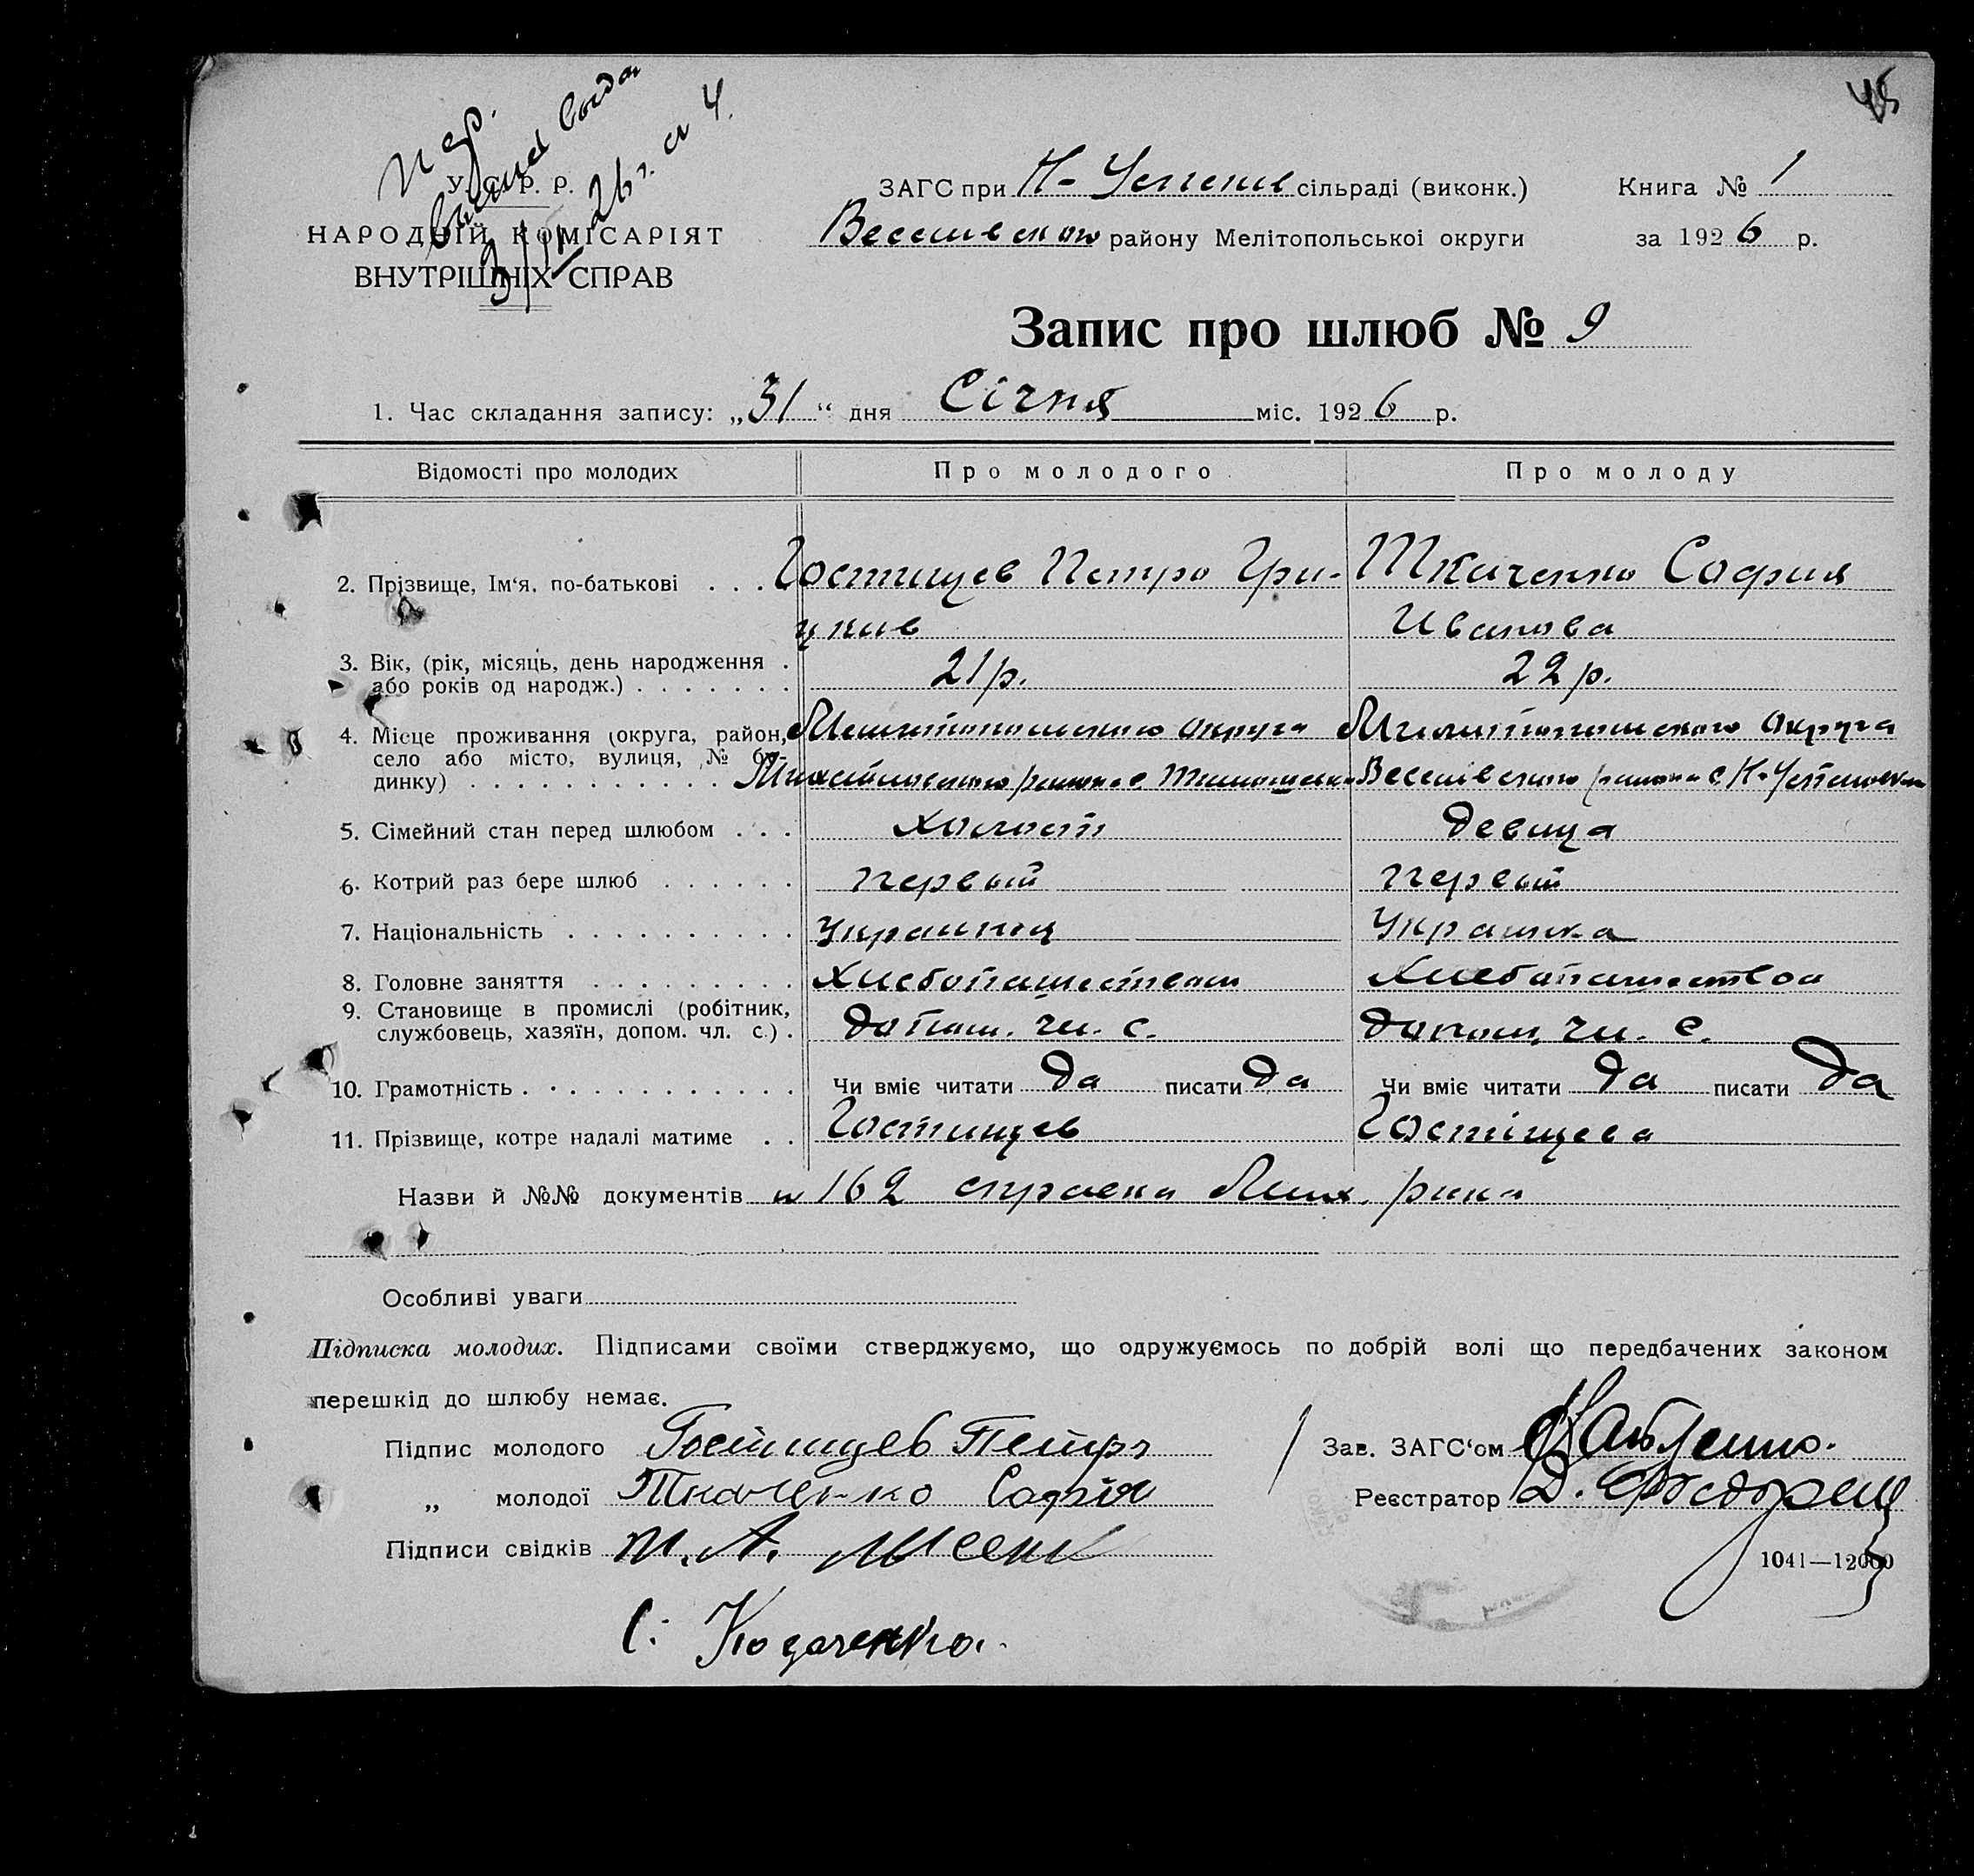 45
У. С. Р. Р.
НАРОДНІЙ КОМІСАРІЯТ
ВНУТРІШНІХ СПРАВ
26 г.
ЗАГС при Н-Успенив сільраді (виконк.)
Веселивского району Мелітопольської округи
Книга № 1
за 1926 р.
Запис про шлюб № 9
1. Час складання запису: „31“ дня Січня міс. 1926 р.
Відомості про молодих Про молодого Про молоду
2. Прізвище, Ім‘я, по-батькові . . . Гостищев Петро Гри- Ткаченко София
цкив Иванова
3. Вік, (рік, місяць, день народження . 21 р. 22 р.
або років од народж.) . . . . . . .
4. Місце проживання (округа, район, Мелитопольского округа Мелитопольского округа
село або місто, вулиця, № бу- района с. Веселівского района с Н-Успеновки
динку) . . . . . . . . . . . .
5. Сімейний стан перед шлюбом . . . Холост девица
6. Котрий раз бере шлюб . . . . . . первый первый
7. Національність . . . . . . . . . . Украинец Украинка
8. Головне заняття . . . . . . . . . Хлебопашеством Хлебопашеством
9. Становище в промислі (робітник,
службовець, хазяїн, допом. чл. с.) . допом. чл. с. допом. чл. с.
10. Грамотність . . . . . . . . . . . Чи вміє читати да писати да Чи вміє читати да писати да
11. Прізвище, котре надалі матиме . . Гостищев Гостіщева
Назви й №№ документів 162 справка
Особливі уваги
Підписка молодих. Підписами своїми стверджуємо, що одружуємось по добрій волі що передбачених законом
перешкід до шлюбу немає.
Підпис молодого Гостищев Петръ Зав. ЗАГС‘ом
„ молодої Ткаченко Софія Реєстратор Д.
Підписи свідків
1041—12000
С. Козаченко.